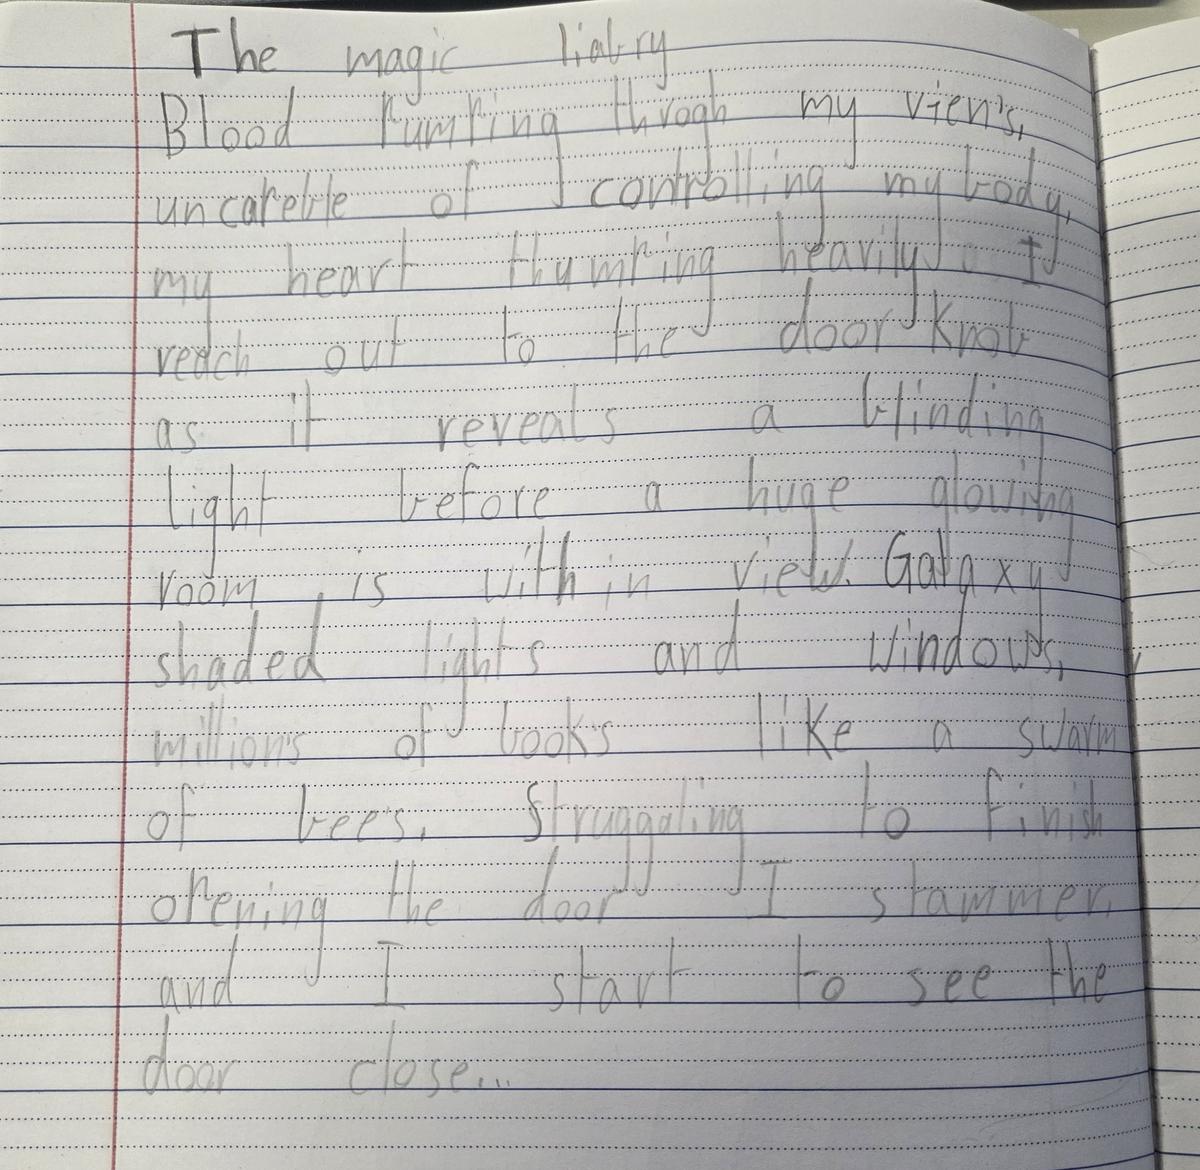 The magic liabry
Blood Pumping throgh my vien's,
uncapeble of controlling my body,
my heart thumping heavily. I
reach out to the door Knob
as it reveals a blinding
light before a huge glowing
room is with in view. Galaxy
shaded lights and Windows,
million's of book's like a swarm
of bee's. Struggaling to finish
opening the door I stammer,
and I start to see the
door close...